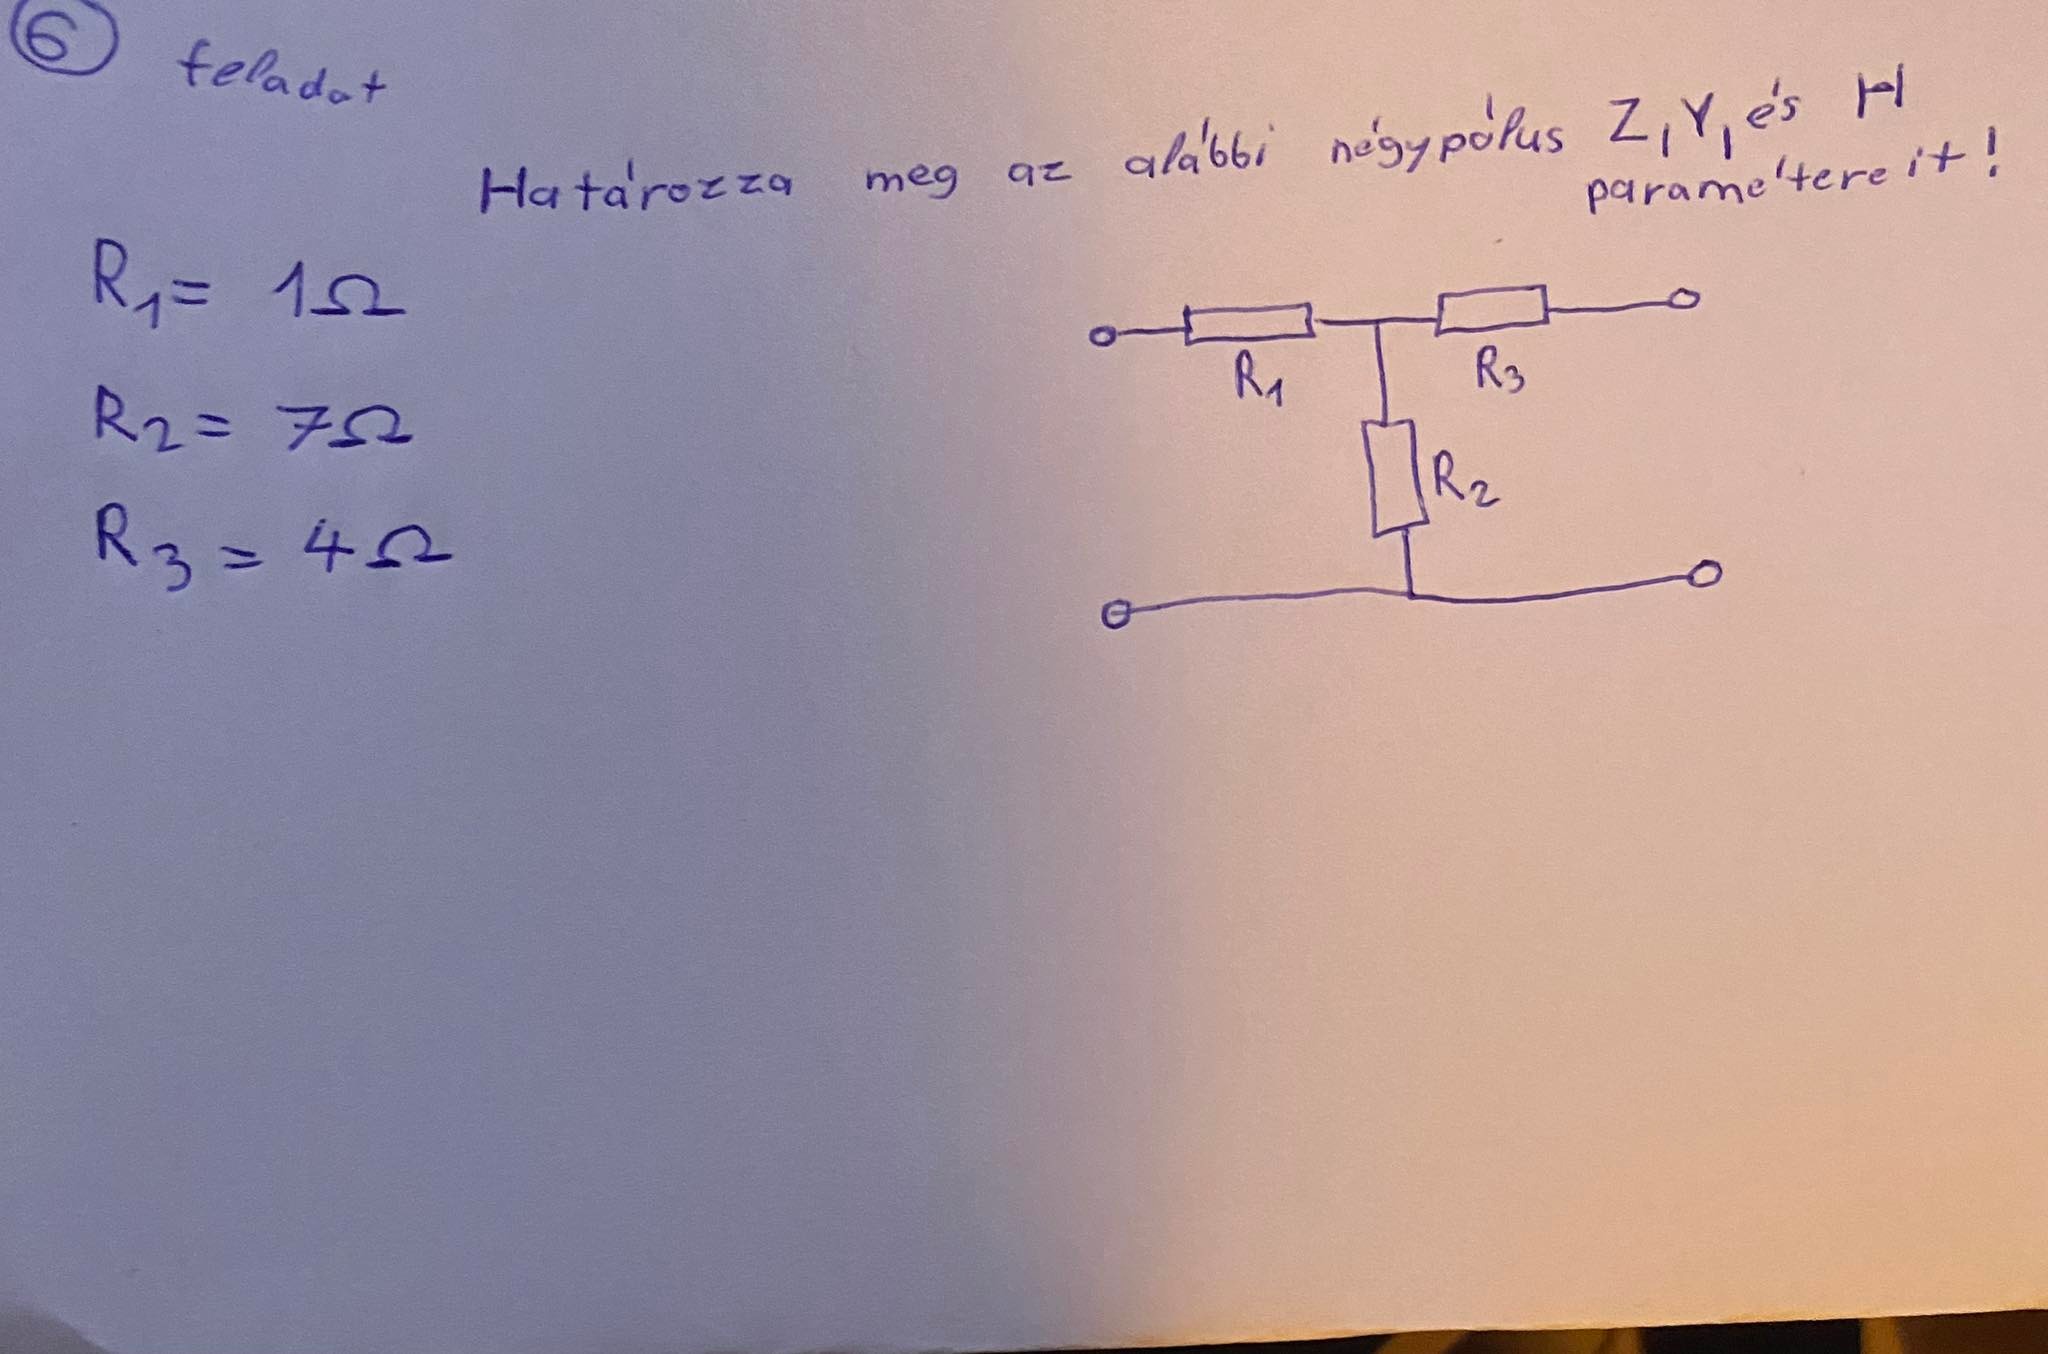 6 feladat
Határozza meg az alábbi négypólus Z, Y, és H
paramétereit!
R1 = 1Ω
R2 = 7Ω
R3 = 4Ω
R1
R3
R2